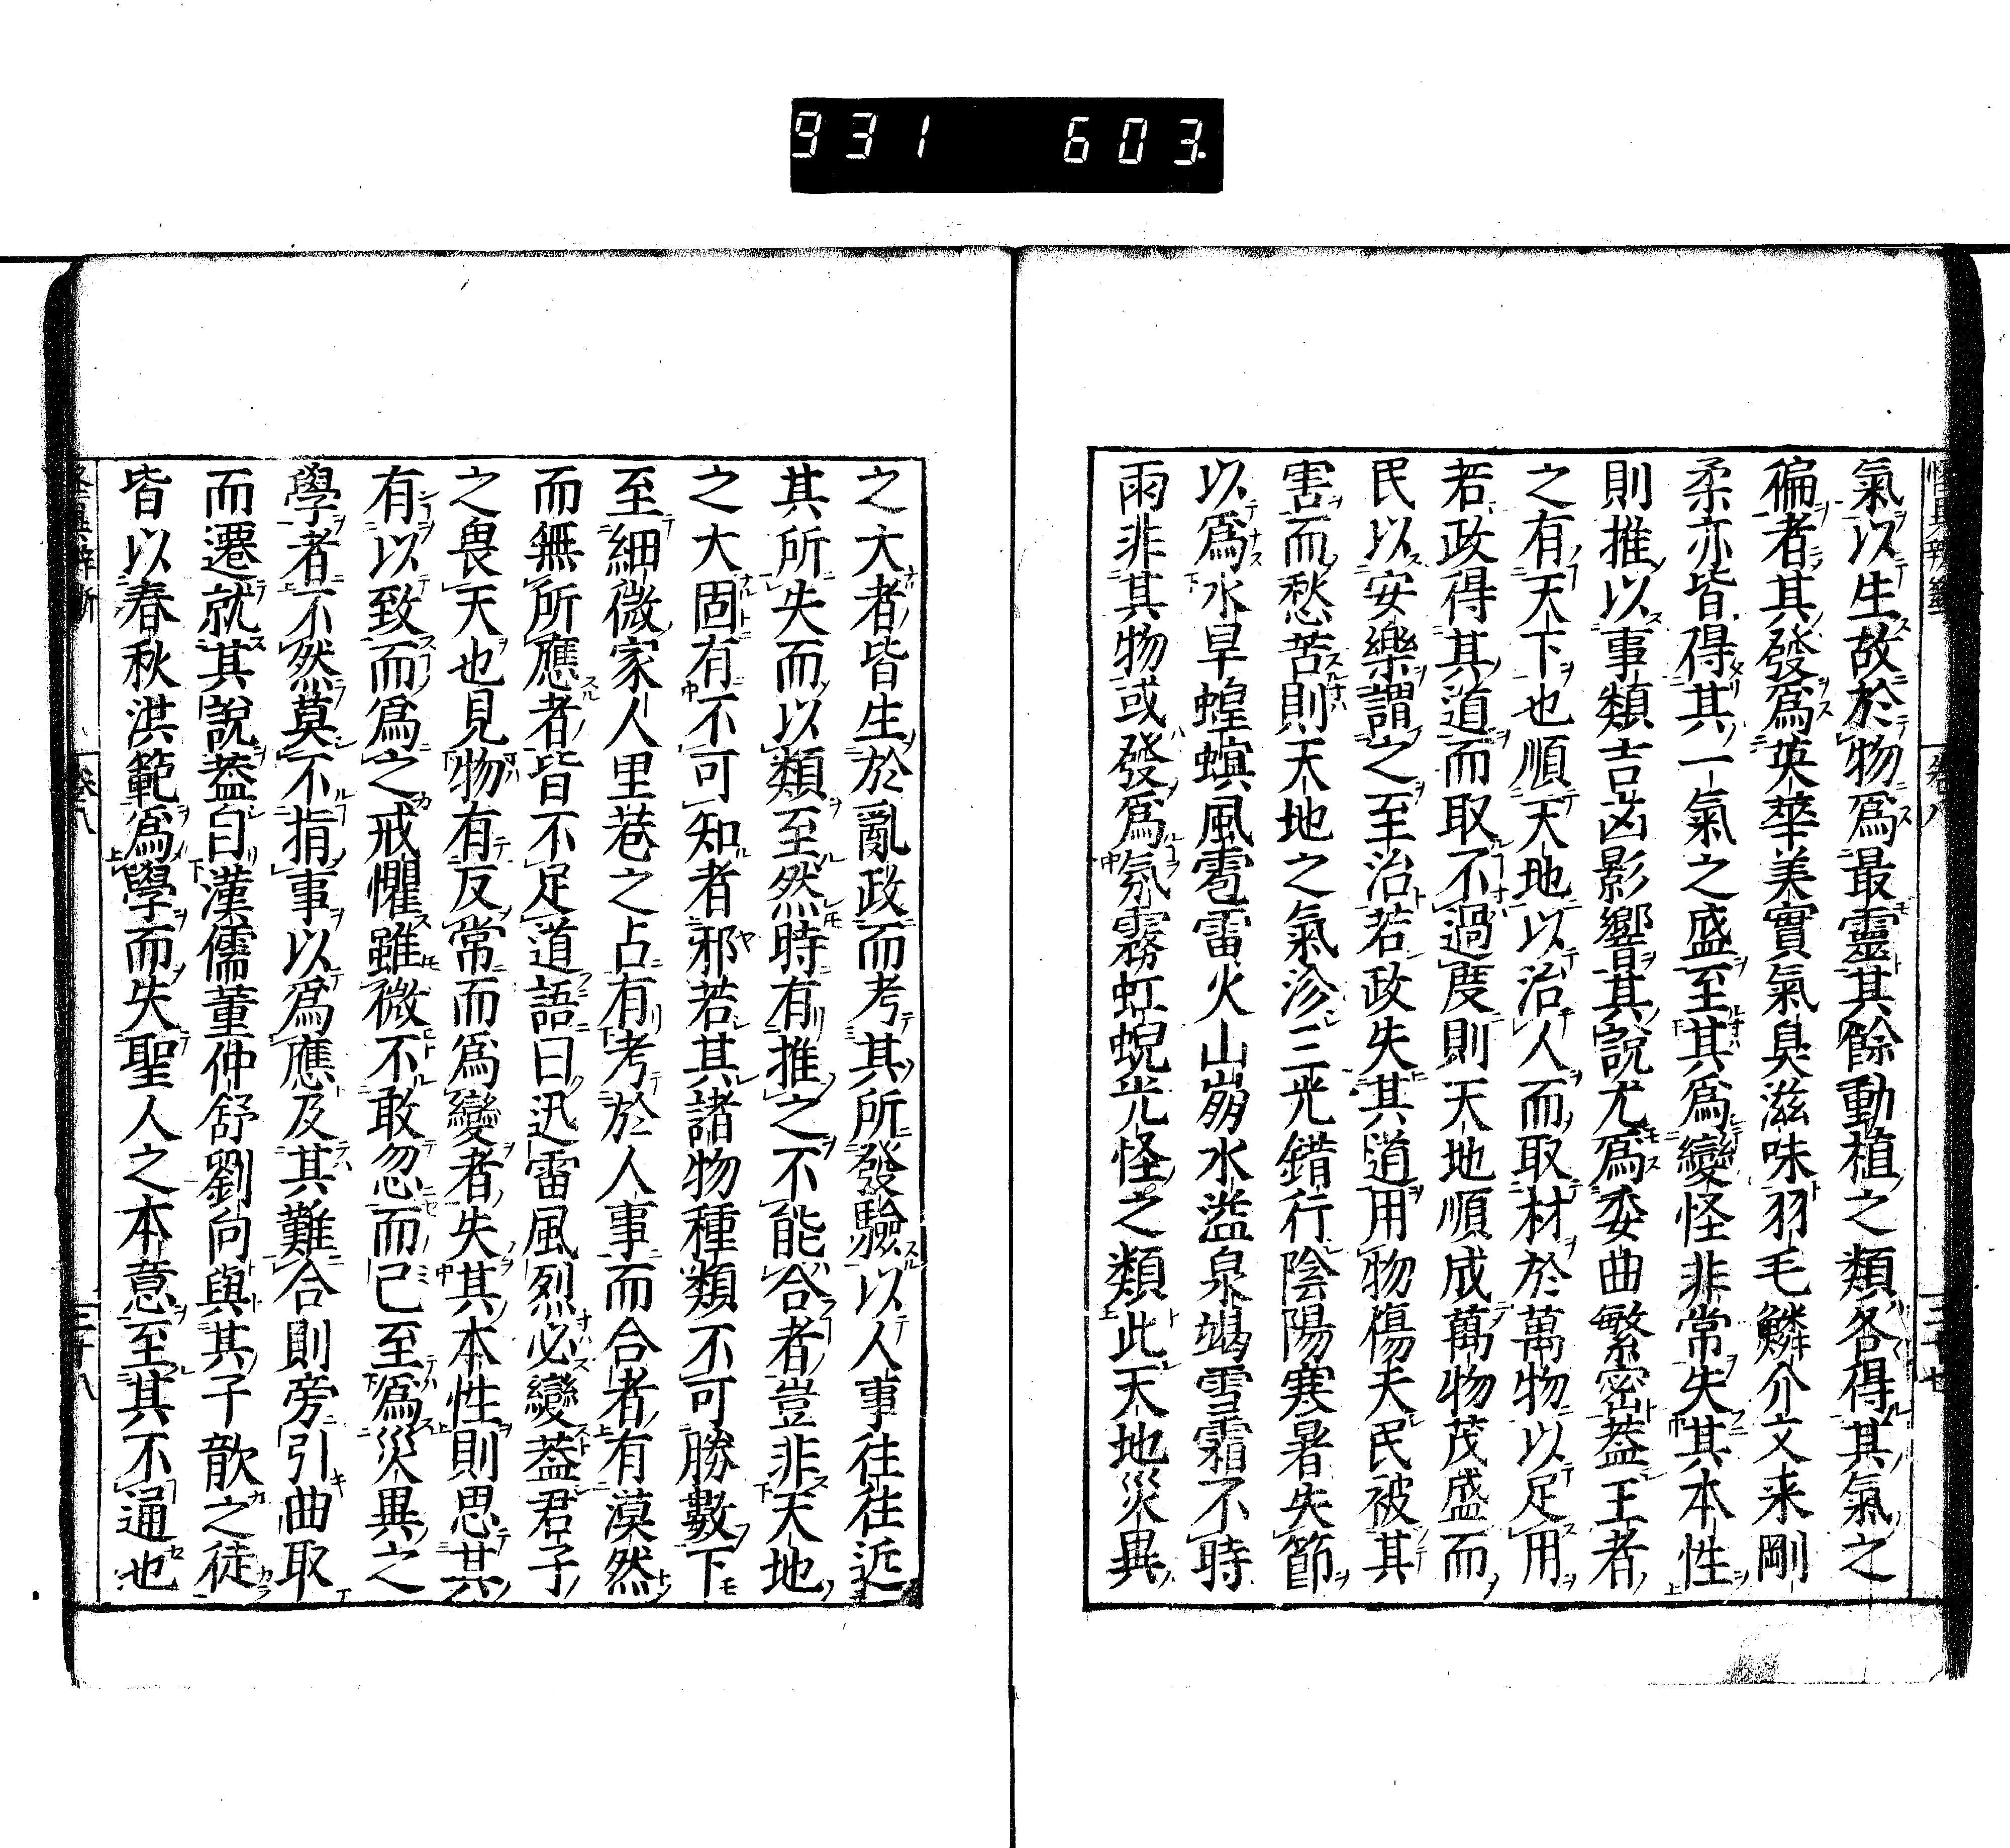 931 603.
氣以生故於物爲最靈其餘動植之類各得其氣之
偏者其發爲英華美實氣臭滋味羽毛鱗介文采剛
柔亦皆得其一氣之盛至其爲變怪非常失其本性
則推以事類吉凶影響其說尤爲委曲繁密蓋王者
之有天下也順天地以治人而取材於萬物以足用
若政得其道而取不過度則天地順成萬物茂盛而
民以安樂謂之至治若政失其道用物傷夭民被其
害而愁苦則天地之氣沴三光錯行陰陽寒暑失節
以爲水旱蝗螟風雹雷火山崩水溢泉竭雪霜不時
雨非其物或發爲氛霧虹蜺光怪之類此天地災異
之大者皆生於亂政而考其所發驗以人事往往近
其所失而以類至然時有推之不能合者豈非天地
之大固有不可知者邪若其諸物種類不可勝數下
至細微家人里巷之占有考於人事而合者有漠然
而無所應者皆不足道語曰迅雷風烈必變蓋君子
之畏天也見物有反常而爲變者失其本性則思其
有以致而爲之戒懼雖微不敢忽而已至爲災異之
學者不然莫不指事以爲應及其難合則旁引曲取
而遷就其說蓋自漢儒董仲舒劉向與其子歆之徒
皆以春秋洪範爲學而失聖人之本意至其不通也